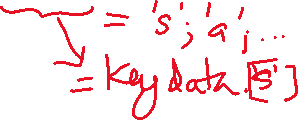 = 's', 'a', ...
= Key data['s']